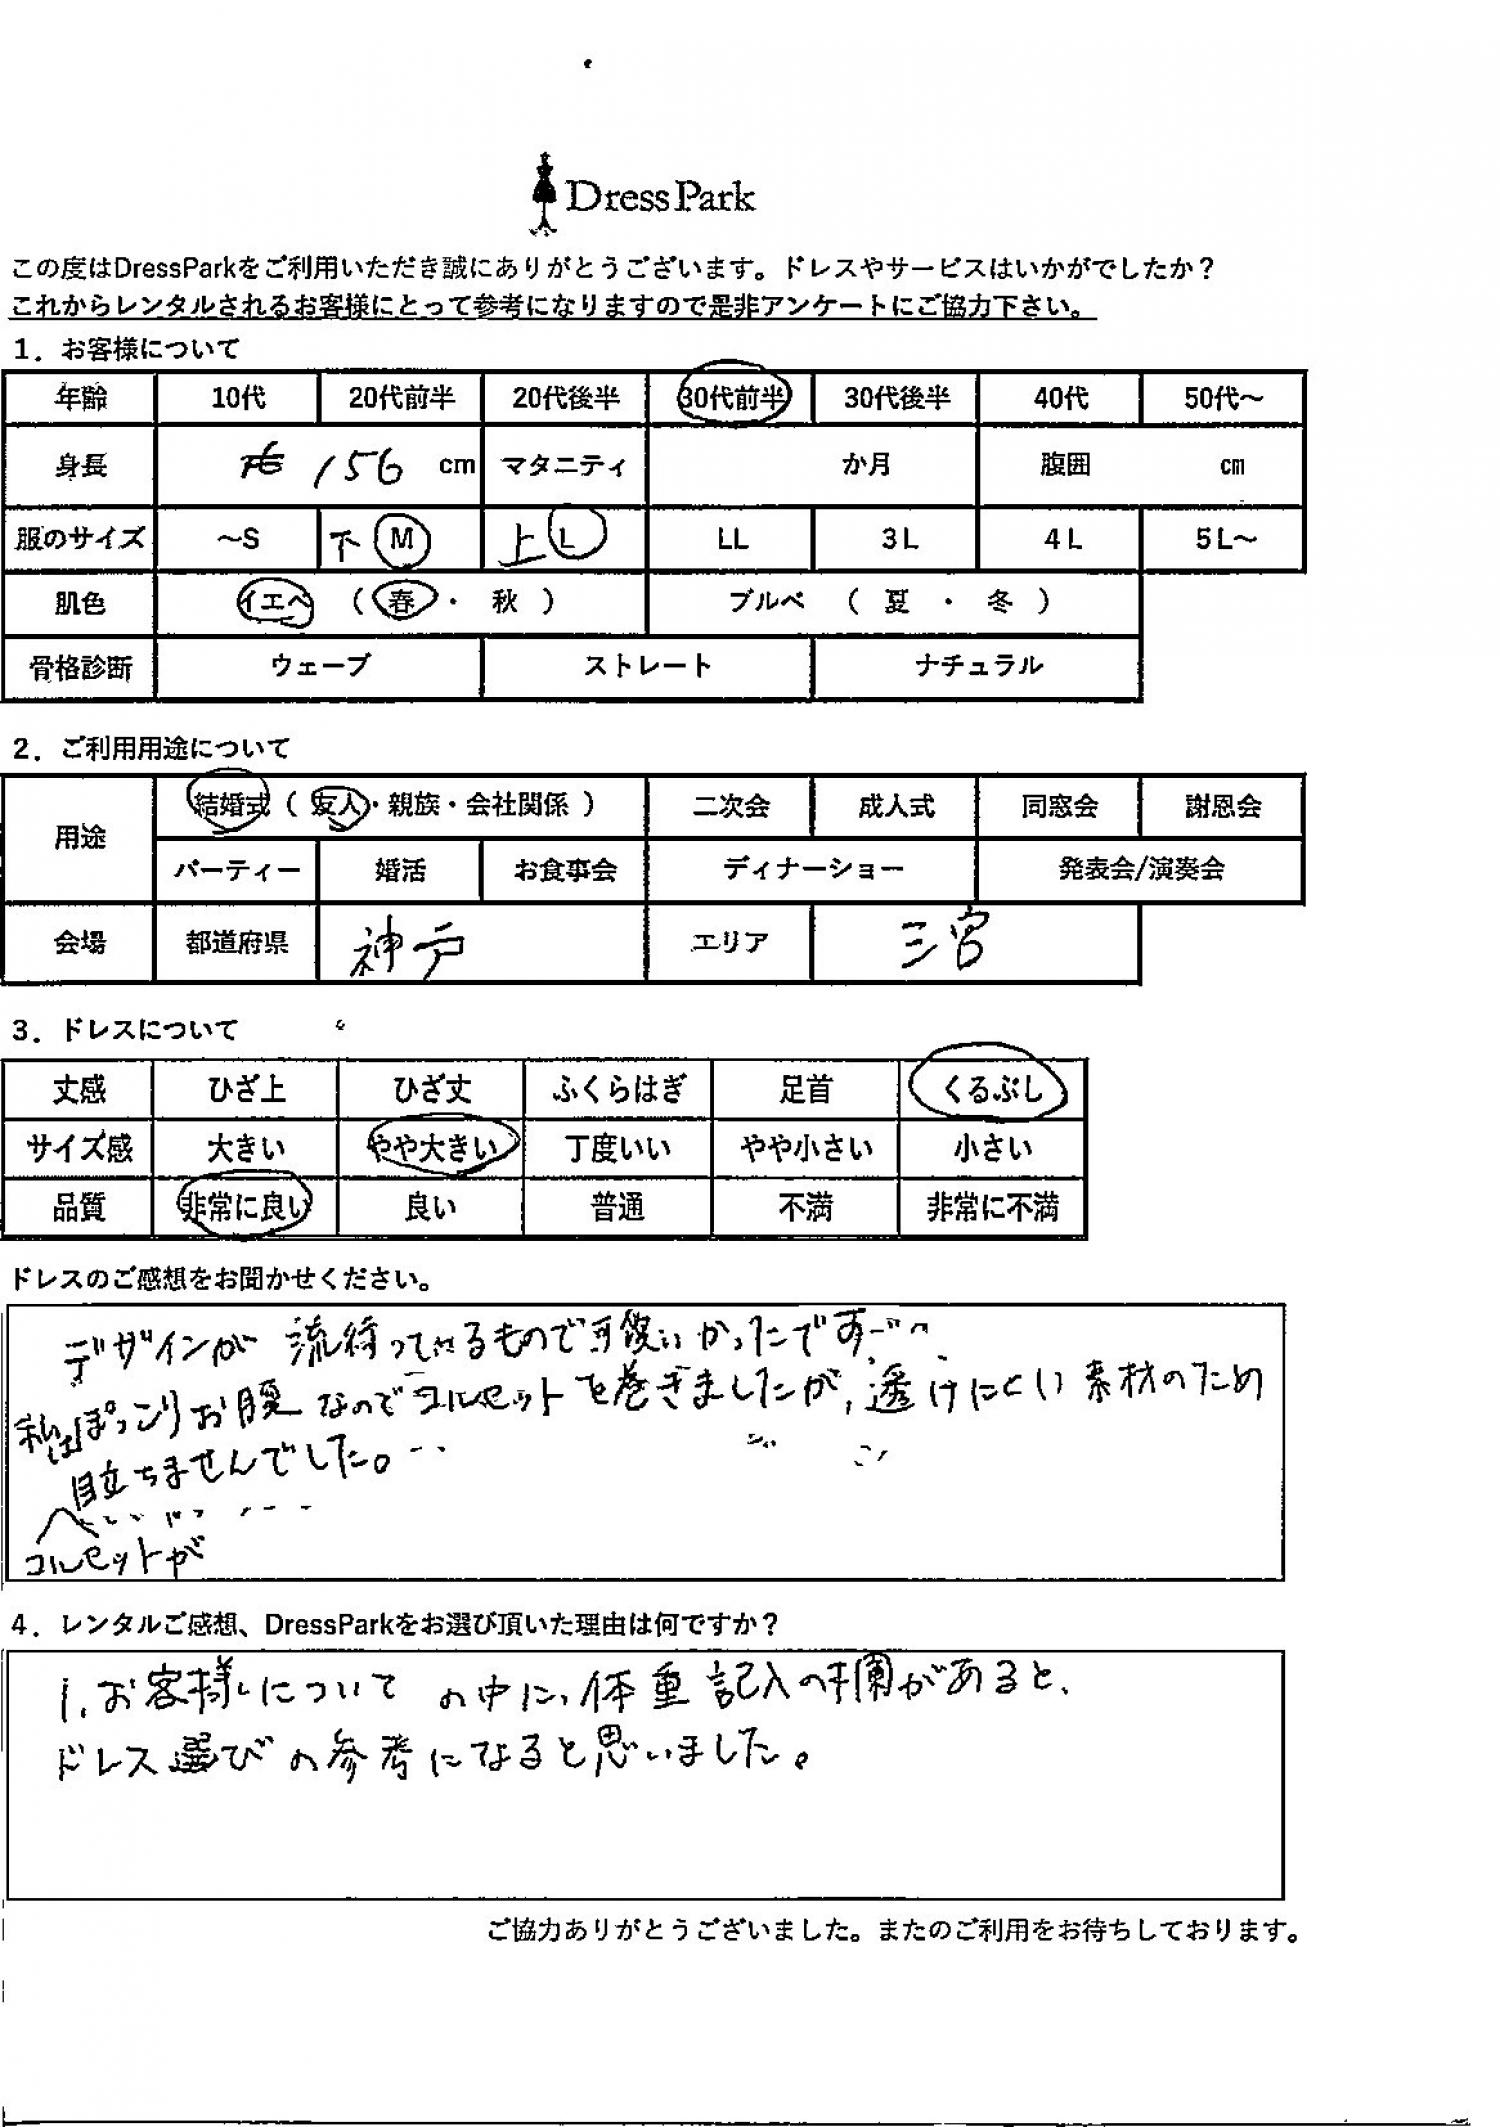 DressPark
この度はDressParkをご利用いただき誠にありがとうございます。ドレスやサービスはいかがでしたか？
これからレンタルされるお客様にとって参考になりますので是非アンケートにご協力下さい。
1．お客様について
年齢 10代 20代前半 20代後半 30代前半 30代後半 40代 50代～
身長 156 cm マタニティ か月 腹囲 cm
服のサイズ ～S 下 M 上 L LL 3L 4L 5L～
肌色 イエベ （ 春 ・ 秋 ） ブルベ （ 夏 ・ 冬 ）
骨格診断 ウェーブ ストレート ナチュラル
2．ご利用用途について
用途 結婚式（ 友人・親族・会社関係 ） 二次会 成人式 同窓会 謝恩会
パーティー 婚活 お食事会 ディナーショー 発表会/演奏会
会場 都道府県 神戸 エリア 三宮
3．ドレスについて
丈感 ひざ上 ひざ丈 ふくらはぎ 足首 くるぶし
サイズ感 大きい やや大きい 丁度いい やや小さい 小さい
品質 非常に良い 良い 普通 不満 非常に不満
ドレスのご感想をお聞かせください。
デザインが 流行っているもので可愛いかったです
私はぽっこりお腹なのでコルセットを巻きましたが、透けにくい素材のため
目立ちませんでした。
コルセットが
4．レンタルご感想、DressParkをお選び頂いた理由は何ですか？
1.お客様について の中に、体重記入の欄があると、
ドレス選びの参考になると思いました。
ご協力ありがとうございました。またのご利用をお待ちしております。